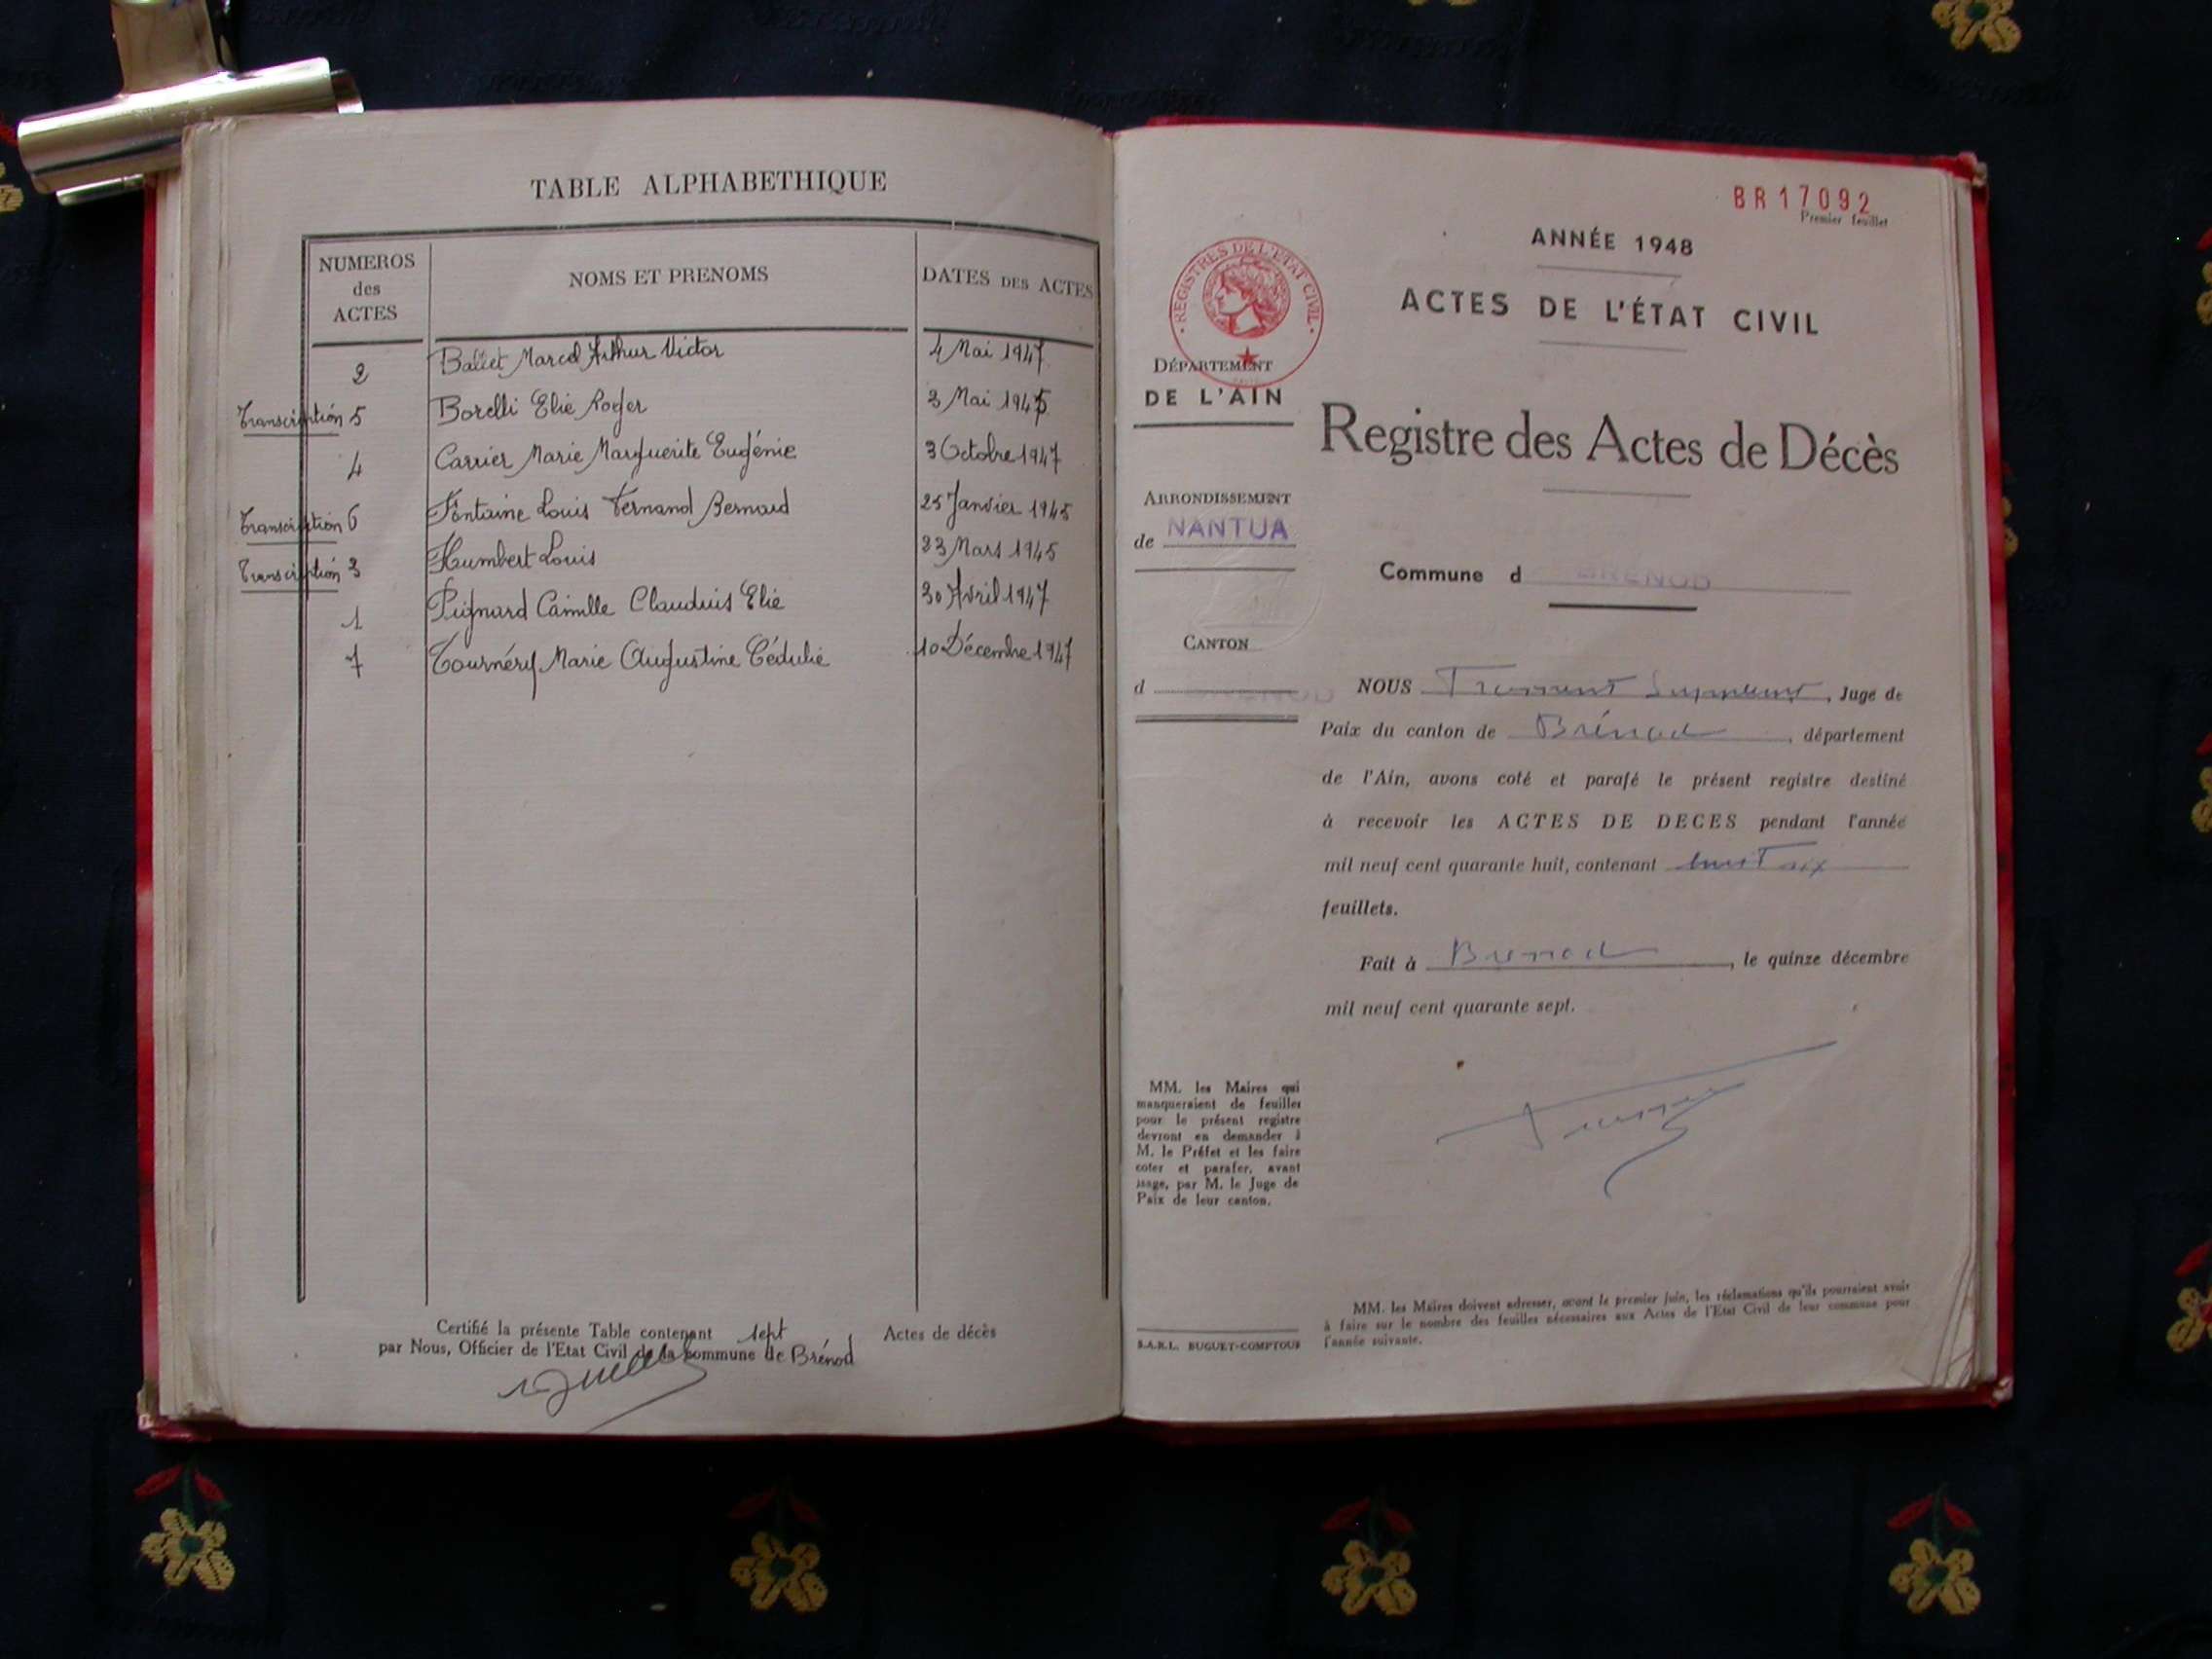 TABLE ALPHABETHIQUE
NUMEROS des ACTES
NOMS ET PRENOMS
DATES DES ACTES
2 Ballet Marcel Arthur Victor 4 Mai 1947
Transcription 5 Borelli Elie Roger 3 Mai 1945
4 Carrier Marie Marguerite Eugénie 3 Octobre 1947
Transcription 6 Fontaine Louis Fernand Bernard 25 Janvier 1945
Transcription 3 Humbert Louis 23 Mars 1945
1 Pignard Camille Claudius Elie 30 Avril 1947
7 Tournéry Marie Augustine Cédulie 10 Décembre 1947
Certifié la présente Table contenant sept Actes de décès
par Nous, Officier de l'Etat Civil de la commune de Brénod
BR17092
Premier feuillet
ANNÉE 1948
ACTES DE L'ÉTAT CIVIL
REGISTRES DE L'ETAT CIVIL
DÉPARTEMENT
DE L'AIN
Registre des Actes de Décès
ARRONDISSEMENT
de NANTUA
Commune d BRENOD
CANTON
d
NOUS Suppléant, Juge de
Paix du canton de Brénod, département
de l'Ain, avons coté et parafé le présent registre destiné
à recevoir les ACTES DE DECES pendant l'année
mil neuf cent quarante huit, contenant
feuillets.
Fait à Brenod, le quinze décembre
mil neuf cent quarante sept.
MM. les Maires qui
manqueraient de feuilles
pour le présent registre
devront en demander à
M. le Préfet et les faire
coter et parafer, avant
usage, par M. le Juge de
Paix de leur canton.
S.A.R.L. BUGUET-COMPTOUR
MM. les Maires doivent adresser, avant le premier Juin, les réclamations qu'ils pourraient avoir
à faire sur le nombre des feuilles nécessaires aux Actes de l'Etat Civil de leur commune pour
l'année suivante.